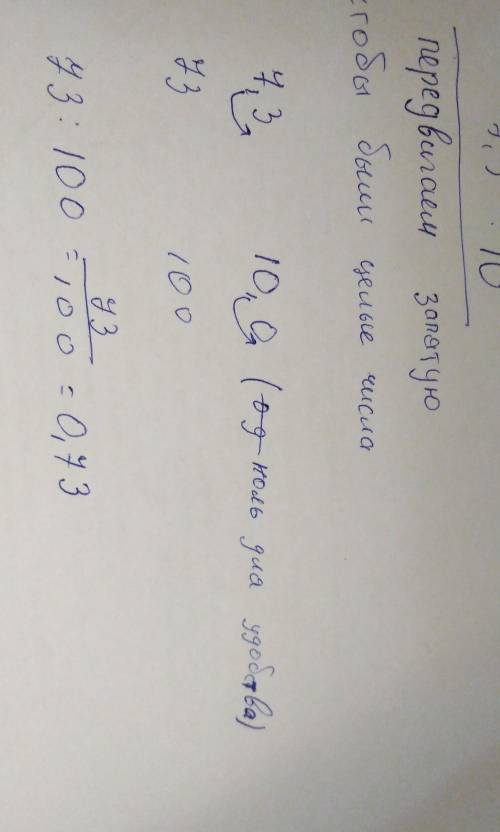 7,3 : 10
передвигаем запятую
чтобы были целые числа
7,3 10,0 (ноль для удобства)
73 100
73 : 100 = 73/100 = 0,73